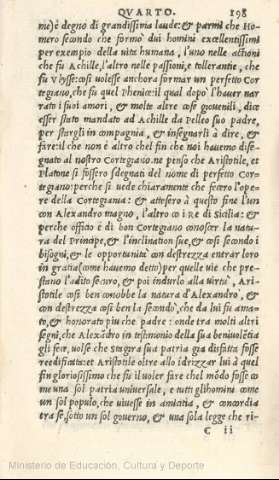 QVARTO. 198
me) è degno di grandissima laude: & parmi che Ho-
mero secondo che formò dui homini excellentissimi
per exempio della uita humana, l'uno nelle actioni
che fu Achille, l'altro nelle passioni, e tollerantie, che
fu Vlysse: cosi uolesse anchora formar un perfetto Cor-
tegiano, che fu quel Phenice: il qual dopò l'hauer nar-
rato i suoi amori, & molte altre cose giouenili, dice
esser stuto mandato ad Achille da Pelleo suo padre,
per stargli in compagnia, & insegnarli à dire, &
fare: il che non è altro che'l fin che noi hauemo dise-
gnato al nostro Cortegiano. ne penso che Aristotile, et
Platone si fossero sdegnati del nome di perfetto Cor-
tegiano: perche si uede chiaramente che fecero l'ope-
re della Cortegiania: & attesero à questo fine l'un
con Alexandro magno, l'altro co i Re di Sicilia: &
perche officio è di bon Cortegiano conoscer la natu-
ra del Principe, & l'inclination sue, & cosi secondo i
bisogni, & le opportunità con destrezza entrar loro
in gratia (come hauemo detto) per quelle uie che pre-
stano l'adito securo, & poi indurlo alla uirtù, Ari-
stotile cosi ben conobbe la natura d'Alexandro, & con
con destrezza cosi ben la secondò, che da lui fu ama-
to, & honorato piu che padre: onde tra molti altri
segni, che Alexādro in testimonio della sua beniuolētia
gli fece, uolse che Stagira sua patria gia disfatta fosse
reedificata: et Aristotile oltre allo idrizzar lui à quel
fin gloriosissimo che fu il uoler fare che'l mōdo fosse co
me una sol patria uniuersale, e tutti gl'homini come
un sol populo, che uiuesse in amicitia, & concordia
tra se, sotto un sol gouerno, & una sola legge che ri-
C ii
Ministerio de Educación, Cultura y Deporte